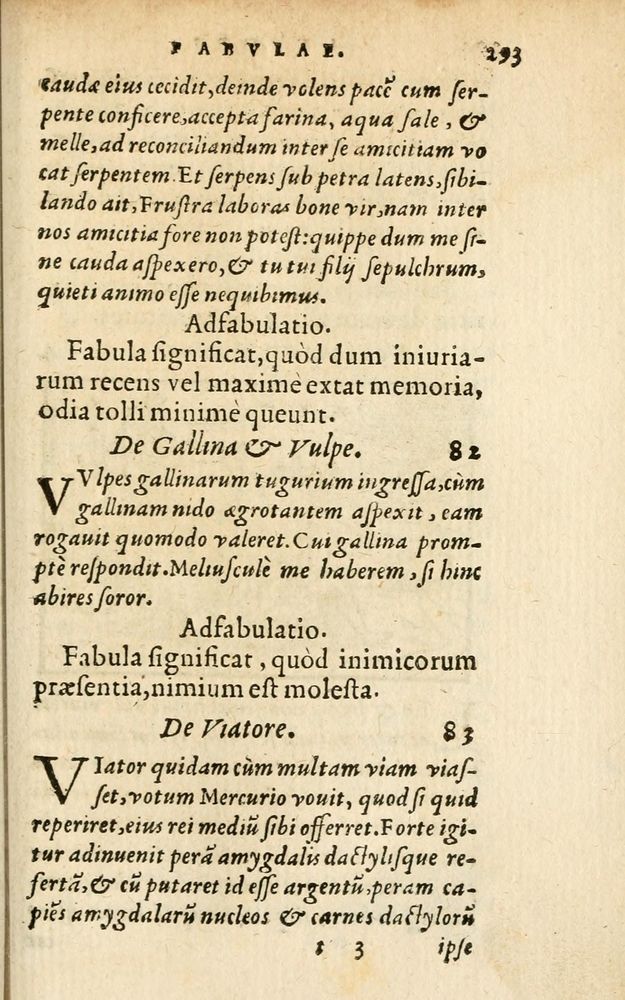 FABVLAE. 293
caudæ eius cecidit, deinde volens pacē cum ser-
pente conficere, accepta farina, aqua sale, &
melle, ad reconciliandum inter se amicitiam vo
cat serpentem. Et serpens sub petra latens, sibi-
lando ait, Frustra laboras bone vir, nam inter
nos amicitia fore non potest: quippe dum me si-
ne cauda aspexero, & tu tui filij sepulchrum,
quieti animo esse nequibimus.
Adfabulatio.
Fabula significat, quòd dum iniuria-
rum recens vel maximè extat memoria,
odia tolli minimè queunt.
De Gallina & Vulpe. 82
VVlpes gallinarum tugurium ingressa, cùm
gallinam nido ægrotantem aspexit, eam
rogauit quomodo valeret. Cui gallina prom-
ptè respondit. Meliusculè me haberem, si hinc
abires soror.
Adfabulatio.
Fabula significat, quòd inimicorum
præsentia, nimium est molesta.
De Viatore. 83
VIator quidam cùm multam viam vias-
set, votum Mercurio vouit, quod si quid
reperiret, eius rei mediū sibi offerret. Forte igi-
tur adinuenit perā amygdalis dactylisque re-
fertā, & cū putaret id esse argentū, peram ca-
piēs amygdalarū nucleos & carnes dactylorū
t 3 ipse